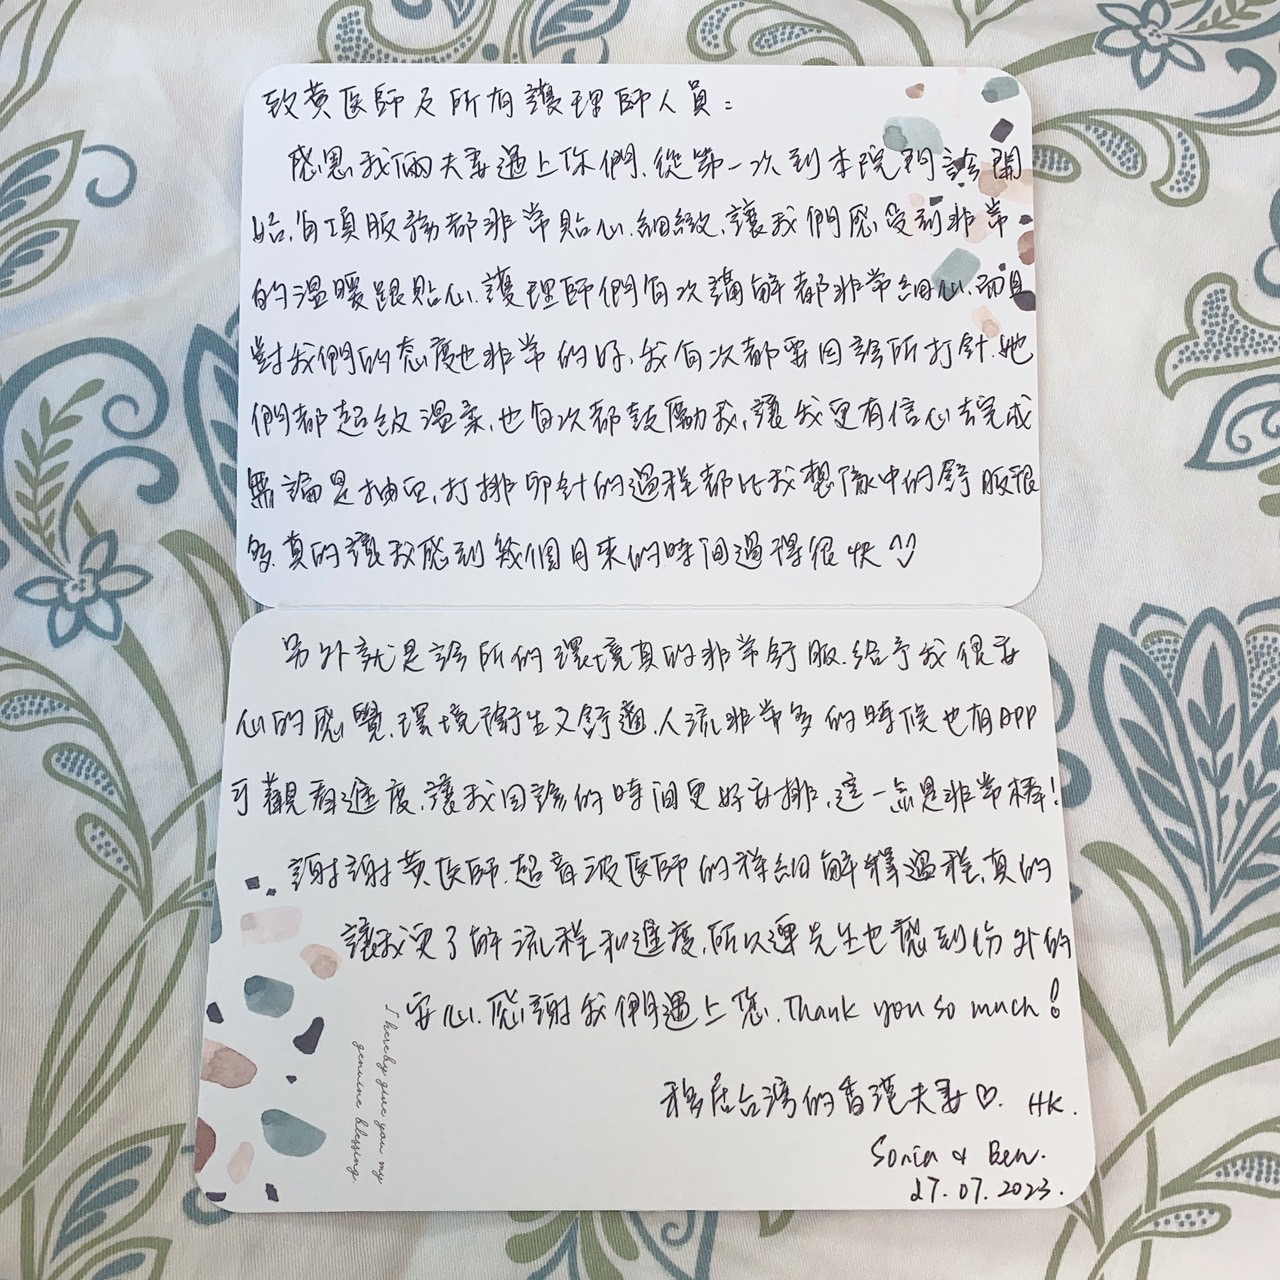 致黃医師及所有護理師人員：
感恩我倆夫妻遇上你們,從第一次到本院門診開
始,每項服務都非常貼心,細緻,讓我們感受到非常
的溫暖跟貼心,護理師們每次講解都非常細心,而且
對我們的态度也非常的好,我每次都要回診所打針,她
們都超級溫柔,也每次都鼓勵我,讓我更有信心去完成
無論是抽血,打排卵針的過程都比我想像中的舒服很
多,真的讓我感到幾個月來的時間過得很快
另外就是診所的環境真的非常舒服,給予我很安
心的感覺,環境衛生又舒適,人流非常多的時候也有APP
可觀看進度,讓我回診的時間更好安排,這一点是非常棒!
謝謝黃医師,超音波医師的詳細解釋過程,真的
讓我更了解流程和進度,所以連先生也感到份外的
安心,感謝我們遇上您,Thank you so much!
移居台灣的香港夫妻♡. HK.
Sonia & Ben.
27.07.2023.
I hereby give you my
genuine blessing.